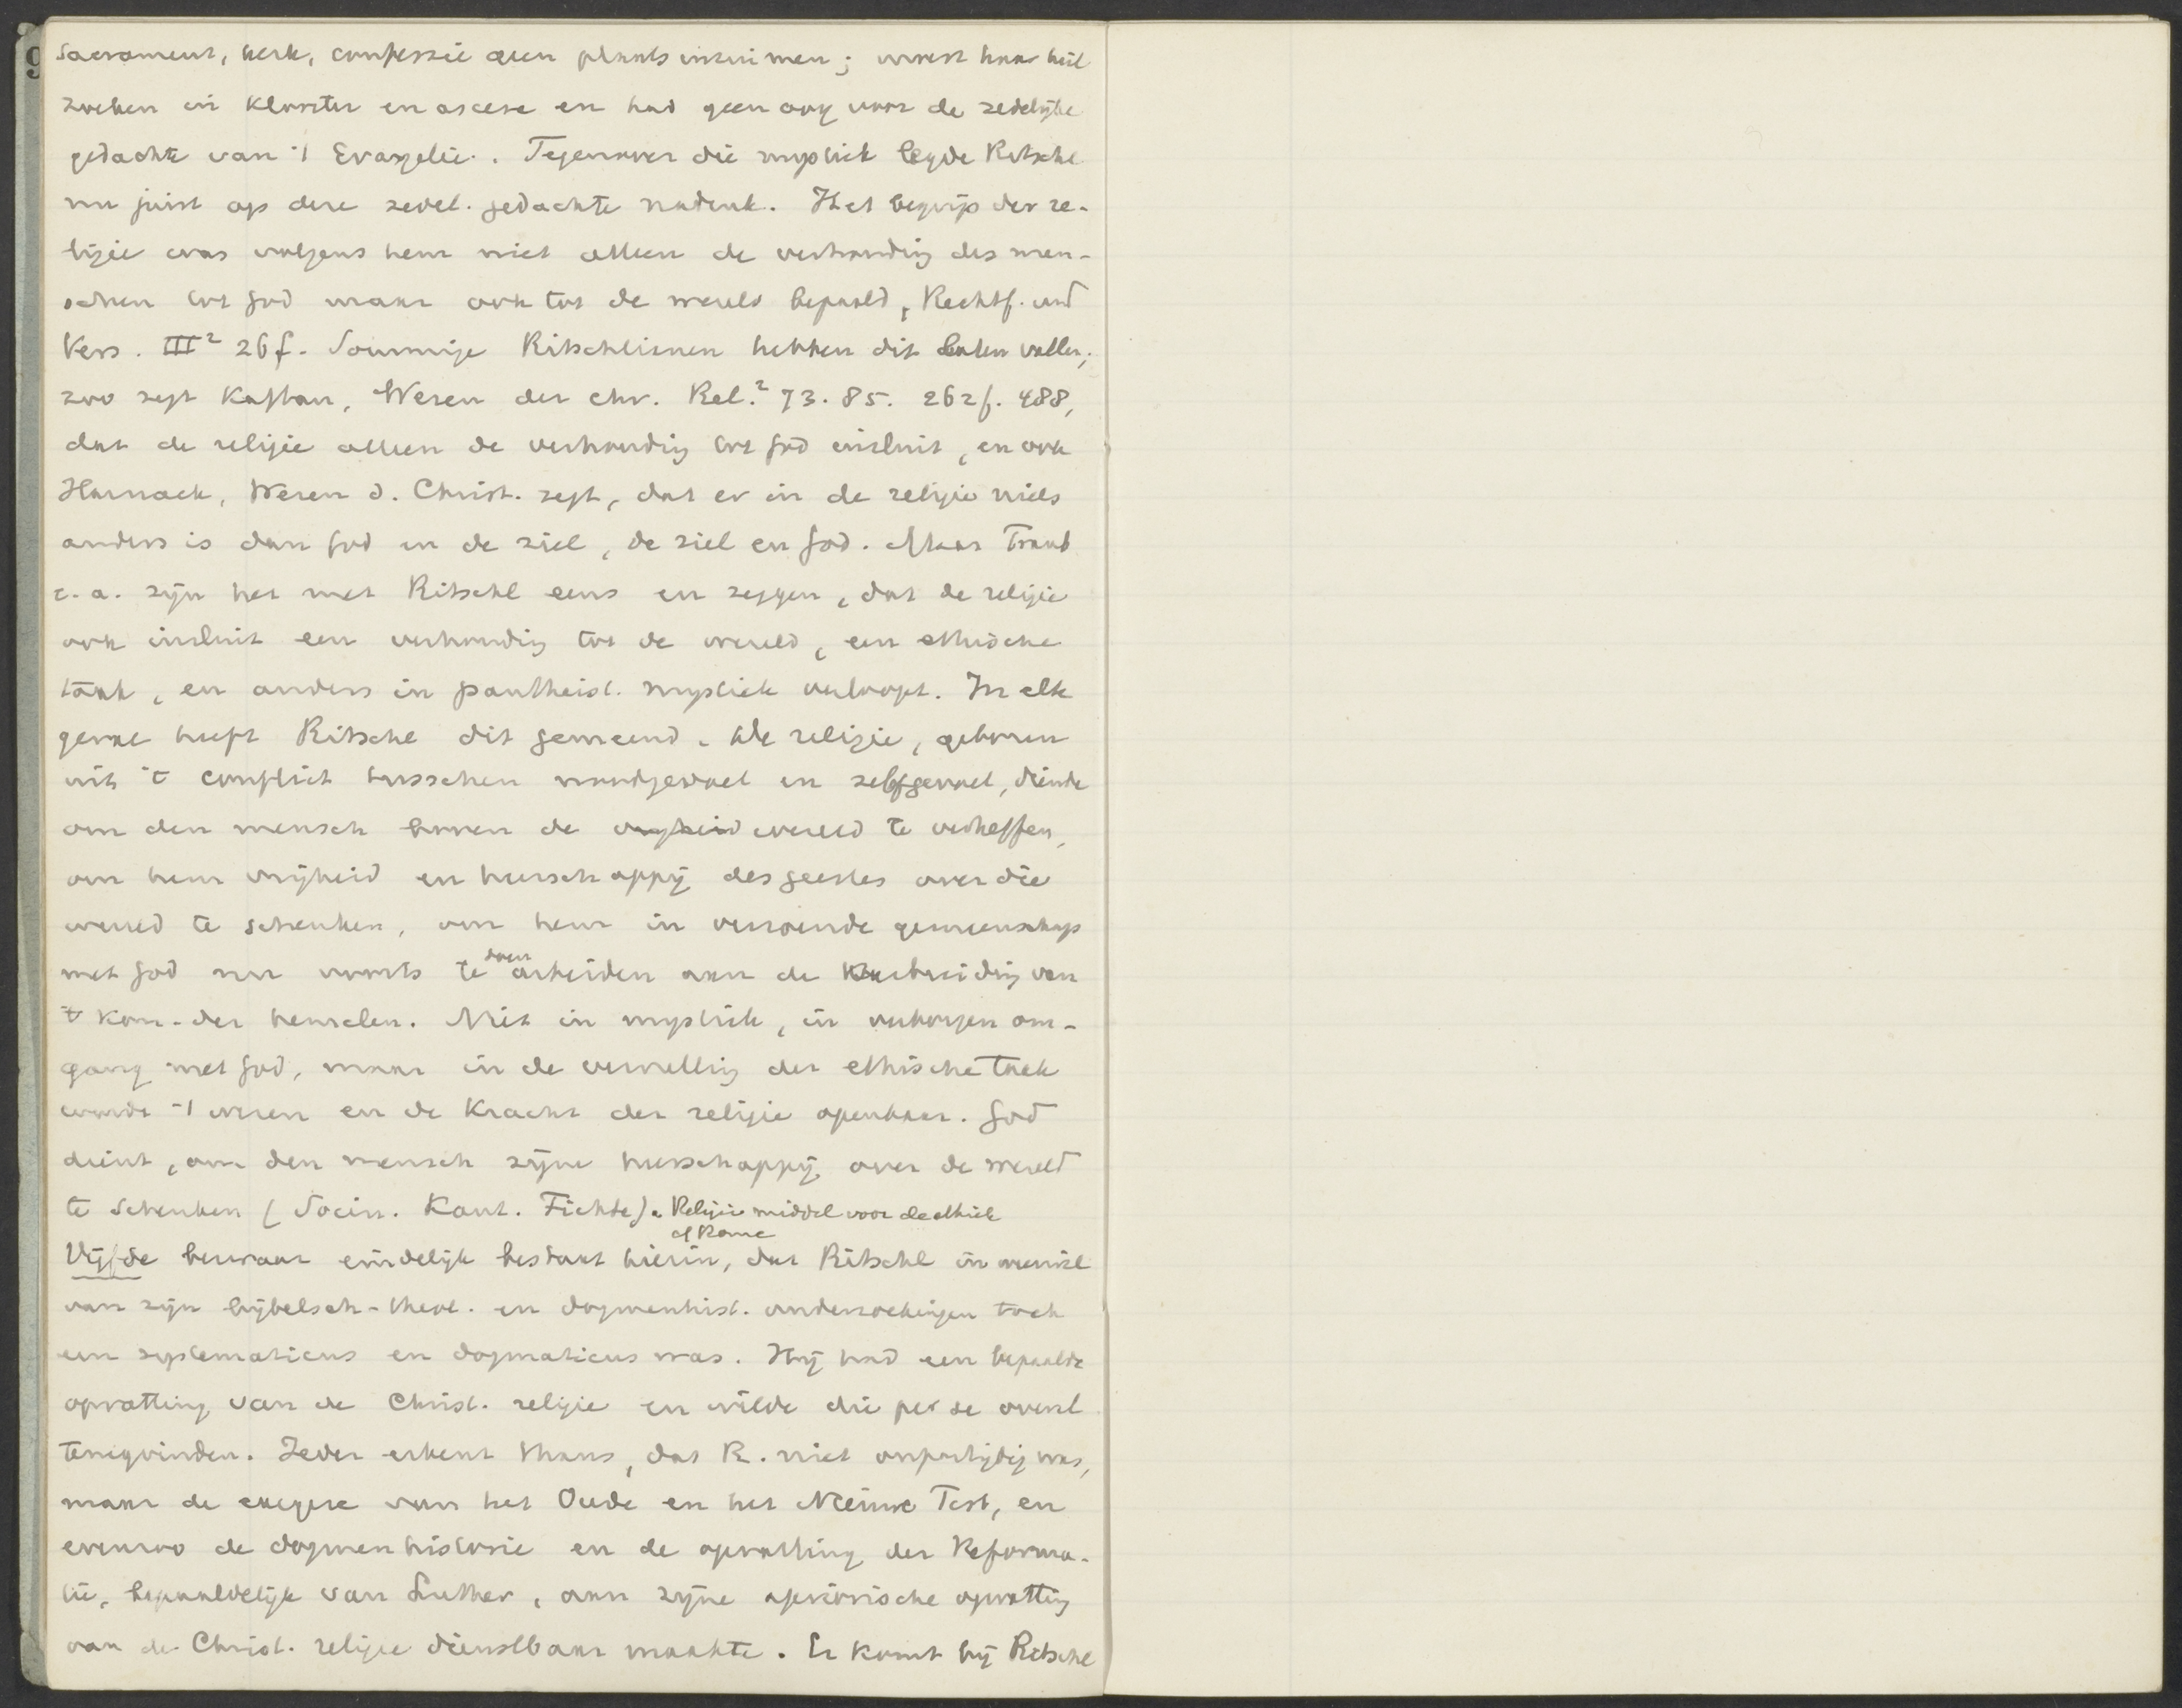 sacrament, kerk, confessie geen plaats inruimen; moest haar heil
zoeken in klooster en ascese en had geen oog voor de zedelijke
gedachte van 't Evangelie. Tegenover die mystiek legde Ritschl
nu juist op deze zedel. gedachte nadruk. Het begrip der re-
ligie was volgens hem niet alleen de verhouding des men-
schen tot God maar ook tot de wereld bepaald, Rechtf. und
Vers. III² 26f. Sommige Ritschlianen hebben dit laten vallen;
zoo zegt Kaftan, Wesen der chr. Rel.² 73. 85. 262f. 488,
dat de religie alleen de verhouding tot God insluit, en ook
Harnack, Wesen d. Christ. zegt, dat er in de religie niets
anders is dan God en de ziel, de ziel en God. Maar Traub
e. a. zijn het met Ritschl eens en zeggen, dat de religie
ook insluit een verhouding tot de wereld, een ethische
taak, en anders in pantheist. mystiek verloopt. In elk
geval heeft Ritschl dit gemeend. De religie, geboren
uit 't conflict tusschen noodgevoel en zelfgevoel, diende
om den mensch boven de vryheid wereld te verheffen,
om hem vrijheid en heerschappij des geestes over die
wereld te schenken, om hem in verzoende gemeenschap
met God nu voorts te doen arbeiden aan de uitbreiding van
't kon. der hemelen. Niet in mystiek, in verborgen om-
gang met God, maar in de vervulling der ethische taak
wordt 't wezen en de kracht der religie openbaar. God
dient, om den mensch zijne heerschappij over de wereld
te schenken (Socin. Kant. Fichte). Religie middel voor de ethiek
cf Rome
Vijfde bezwaar eindelijk bestaat hierin, dat Ritschl in weerwil
van zijn bijbelsch-theol. en dogmenhist. onderzoekingen toch
een systematicus en dogmaticus was. Hij had een bepaalde
opvatting van de Christ. religie en wilde die per se overal
terugvinden. Ieder erkent thans, dat R. niet onpartijdig was,
maar de exegese van het Oude en het Nieuwe Test, en
evenzoo de dogmenhistorie en de opvatting der Reforma-
tie, bepaaldelijk van Luther, aan zijne apriorische opvatting
van de Christ. religie dienstbaar maakte. Er komt bij Ritschl